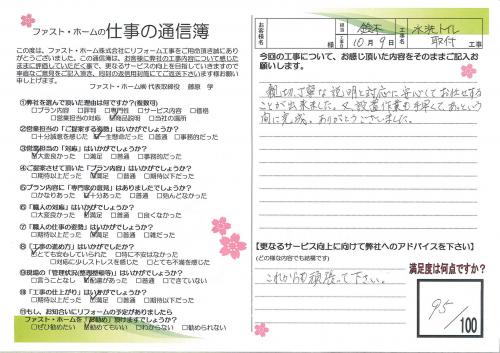 ファスト・ホームの仕事の通信簿
この度は、ファスト・ホーム株式会社にリフォーム工事をご用命頂き誠にあり
がとうございました。弊社は、お客様に弊社の工事内容について感じた
ままに評価していただく事で、更なるサービスの向上を目指していきますので
率直なご意見をご記入頂き、同封の返信用封筒にてご送下さいます様お願い
申し上げます。
ファスト・ホーム㈱ 代表取締役 藤原 学
①弊社を選んで頂いた理由は何ですか？(複数可)
□プラン内容 □評判 □専門性 □サービス内容 □価格
□営業担当の対応 □商品説明 □当社の場所
②営業担当の「ご提案する姿勢」はいかがでしょうか？
□十分誠意を感じた □一生懸命だった □普通 □事務的だった
③営業担当の「対応」はいかがでしょうか？
□大変良かった □満足 □普通 □事務的だった
④ご提案させて頂いた「プラン内容」はいかがでしょうか？
□期待以上だった □満足 □普通 □期待以下だった
⑤プラン内容に「専門家の意見」はありましたでしょうか？
□かなりあった □十分あった □普通 □殆んどなかった
⑥「職人の対応」はいかがでしょうか？
□大変良かった □満足 □普通 □良くなかった
⑦「職人の仕事の姿勢」はいかがでしょうか？
□期待以上だった □満足 □普通 □雑だった
⑧「工事の進め方」はいかがでしたか？
□とても安心していられた □特に不安はなかった
□対応に少しストレスを感じた □とても不満を感じた
⑨現場の「管理状況(整理整頓等)」はいかがでしょうか？
□言うことなし □配慮があった □普通 □期待以下だった
⑩「工事の仕上がり」はいかがでしょうか？
□期待以上だった □満足 □普通 □期待以下だった
⑪もし、お知合いにリフォームの予定がありましたら
ファスト・ホームを「お勧め」頂けますでしょうか？
□ぜひ勧めたい □勧めてもいい □わからない □勧められない
お客様名
担当 鈴木
工事 10月9日
水洗トイレ
取付 工事
今回の工事について、お感じ頂いた内容をそのままご記入お
願いします。
親切、丁寧な説明と対応に安心してお任せする
ことが出来ました。又、設置作業も手早くて、あっという
間に完成。ありがとうございました。
【更なるサービス向上に向けて弊社へのアドバイスを下さい】
(どの様な内容でも結構です)
これからも頑張って下さい。
満足度は何点ですか？
95/100